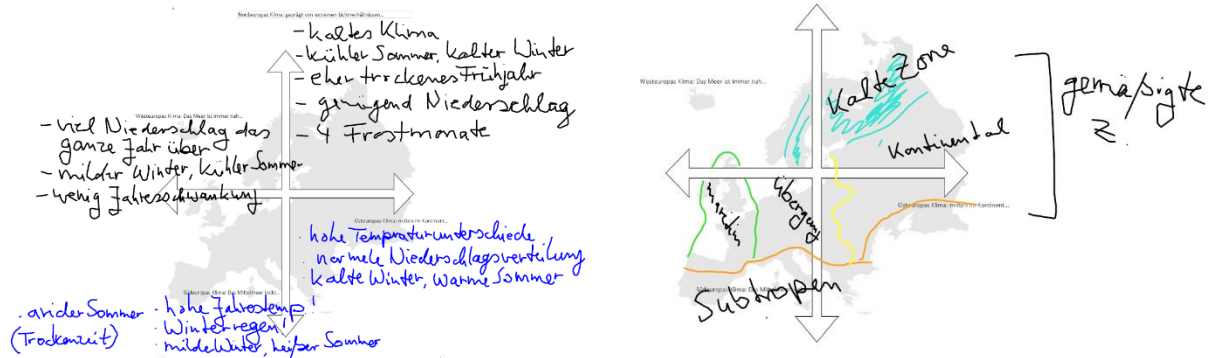 Nordeuropas Klima: geprägt von extremen Lichtverhältnissen...
- kaltes Klima
- kühler Sommer, kalter Winter
- eher trockenes Frühjahr
- genügend Niederschlag
- 4 Frostmonate
Westeuropas Klima: Das Meer ist immer nah...
- viel Niederschlag das
ganze Jahr über
- milder Winter, kühler Sommer
- wenig Jahresschwankung
Osteuropas Klima: mitten im Kontinent...
· hohe Tempraturunterschiede
· normale Niederschlagsverteilung
· kalte Winter, warme Sommer
Südeuropas Klima: Das Mittelmeer lockt...
· arider Sommer
(Trockenzeit)
· hohe Jahrestemp!
· Winterregen!
· milde Winter, heißer Sommer
Westeuropas Klima: Das Meer ist immer nah...
Kalte Zone
gemäßigte
Z.
Kontinental
maritim
Übergang
Osteuropas Klima: mitten im Kontinent...
Südeuropas Klima: Das
Subtropen